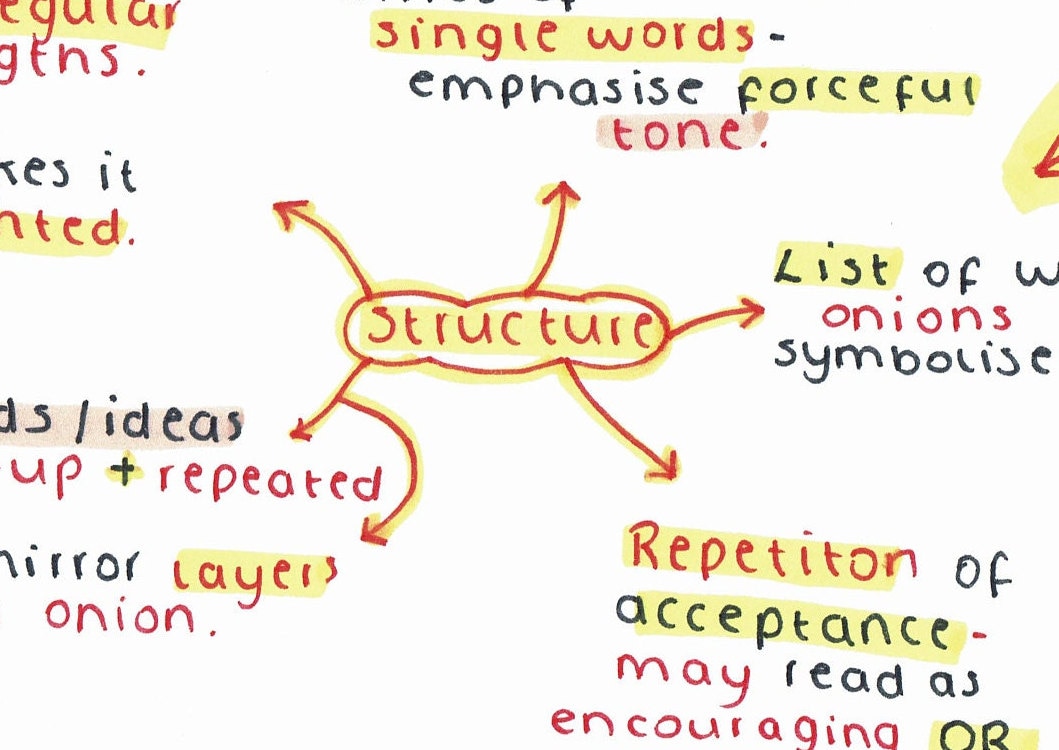 single words-
emphasise forceful
tone.
it
Structure
List of
onions
symbolise
/ideas
up + repeated
layers
onion.
Repetiton of
acceptance-
may read as
encouraging OR